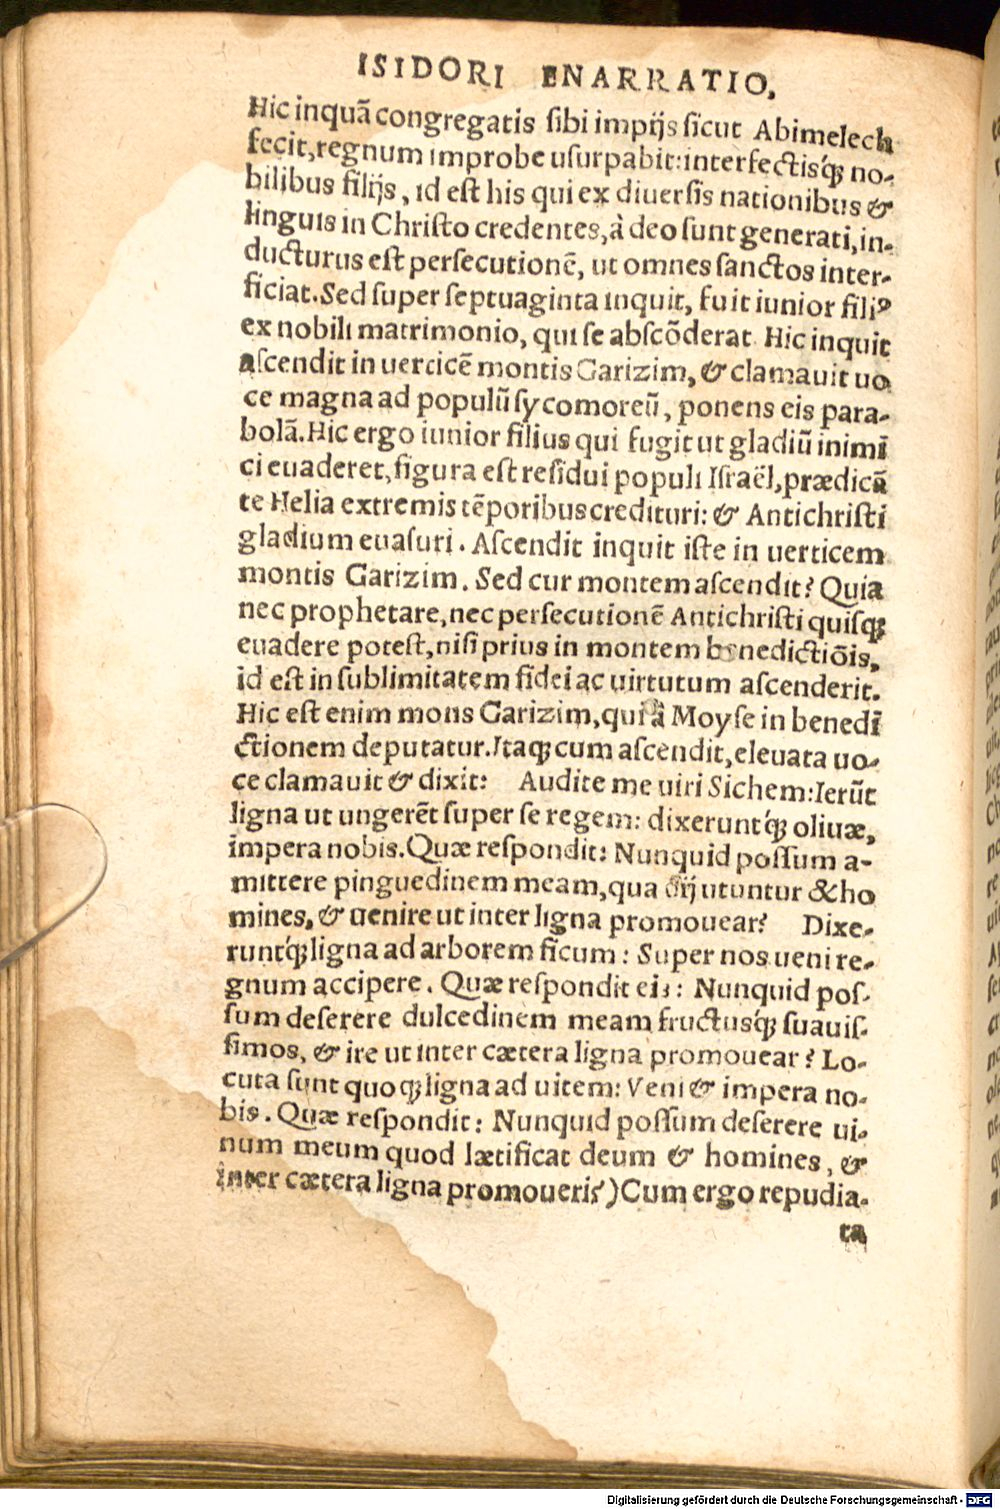 ISIDORI ENARRATIO,
Hic inquã congregatis ſibi impijs ſicut Abimelech
fecit, regnum improbe uſurpabit: interfectisq́ꝫ no-
bilibus filijs, id eſt his qui ex diuerſis nationibus &
linguis in Chriſto credentes, à deo ſunt generati, in-
ducturus eſt perſecutionẽ, ut omnes ſanctos inter-
ficiat. Sed ſuper ſeptuaginta inquit, fuit iunior filiꝰ
ex nobili matrimonio, qui ſe abſcõderat. Hic inquit
aſcendit in uerticẽ montis Garizim, & clamauit uo
ce magna ad populũ ſycomoreũ, ponens eis para-
bolã. Hic ergo iunior filius qui fugit ut gladiũ inimĩ
ci euaderet, figura eſt reſidui populi Iſraël, prædicã
te Helia extremis tẽporibus credituri: & Antichriſti
gladium euaſuri. Aſcendit inquit iſte in uerticem
montis Garizim. Sed cur montem aſcendit? Quia
nec prophetare, nec perſecutionẽ Antichriſti quiſqꝫ
euadere poteſt, niſi prius in montem benedictiõis,
id eſt in ſublimitatem fidei ac uirtutum aſcenderit.
Hic eſt enim mons Garizim, qui à Moyſe in benedĩ
ctionem deputatur. Itaqꝫ cum aſcendit, eleuata uo-
ce clamauit & dixit: Audite me uiri Sichem: Ierũt
ligna ut ungerẽt ſuper ſe regem: dixeruntq́ꝫ oliuæ,
impera nobis. Quæ reſpondit: Nunquid poſſum a-
mittere pinguedinem meam, qua dij utuntur & ho
mines, & uenire ut inter ligna promouear? Dixe-
runtq́ꝫ ligna ad arborem ficum: Super nos ueni re-
gnum accipere. Quæ reſpondit eis: Nunquid poſ-
ſum deſerere dulcedinem meam fructusq́ꝫ ſuauiſ-
ſimos, & ire ut inter cætera ligna promouear? Lo-
cuta ſunt quoqꝫ ligna ad uitem: Veni & impera no-
bis. Quæ reſpondit: Nunquid poſſum deſerere ui-
num meum quod lætificat deum & homines, &
inter cætera ligna promoueri?) Cum ergo repudia-
ta
Digitalisierung gefördert durch die Deutsche Forschungsgemeinschaft - DFG